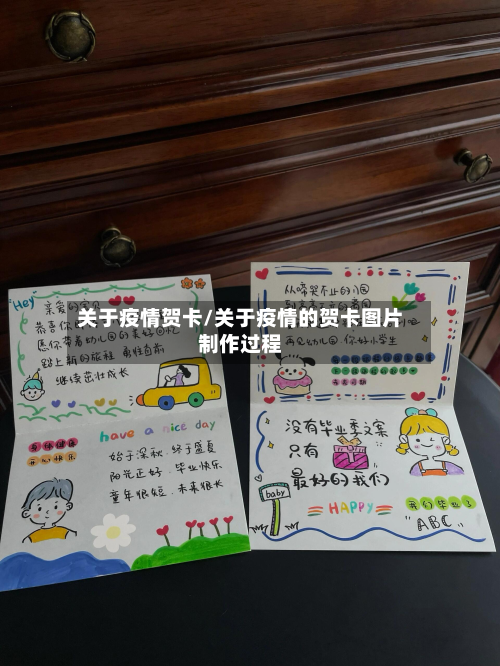 关于疫情贺卡/关于疫情的贺卡图片
制作过程
"Hey"
亲爱的宝贝
恭喜你
愿你带着幼儿园的美好回忆
踏上新的旅程 勇往直前
继续茁壮成长
身体健康
开心快乐
have a nice day
始于深秋 终于盛夏
阳光正好 . 毕业快乐
童年很短 . 未来很长
从啼哭不止的小园
再见幼儿园 你好小学生
没有毕业季文案
只有
最好的我们
baby
HAPPY
我们毕业了
"ABC"